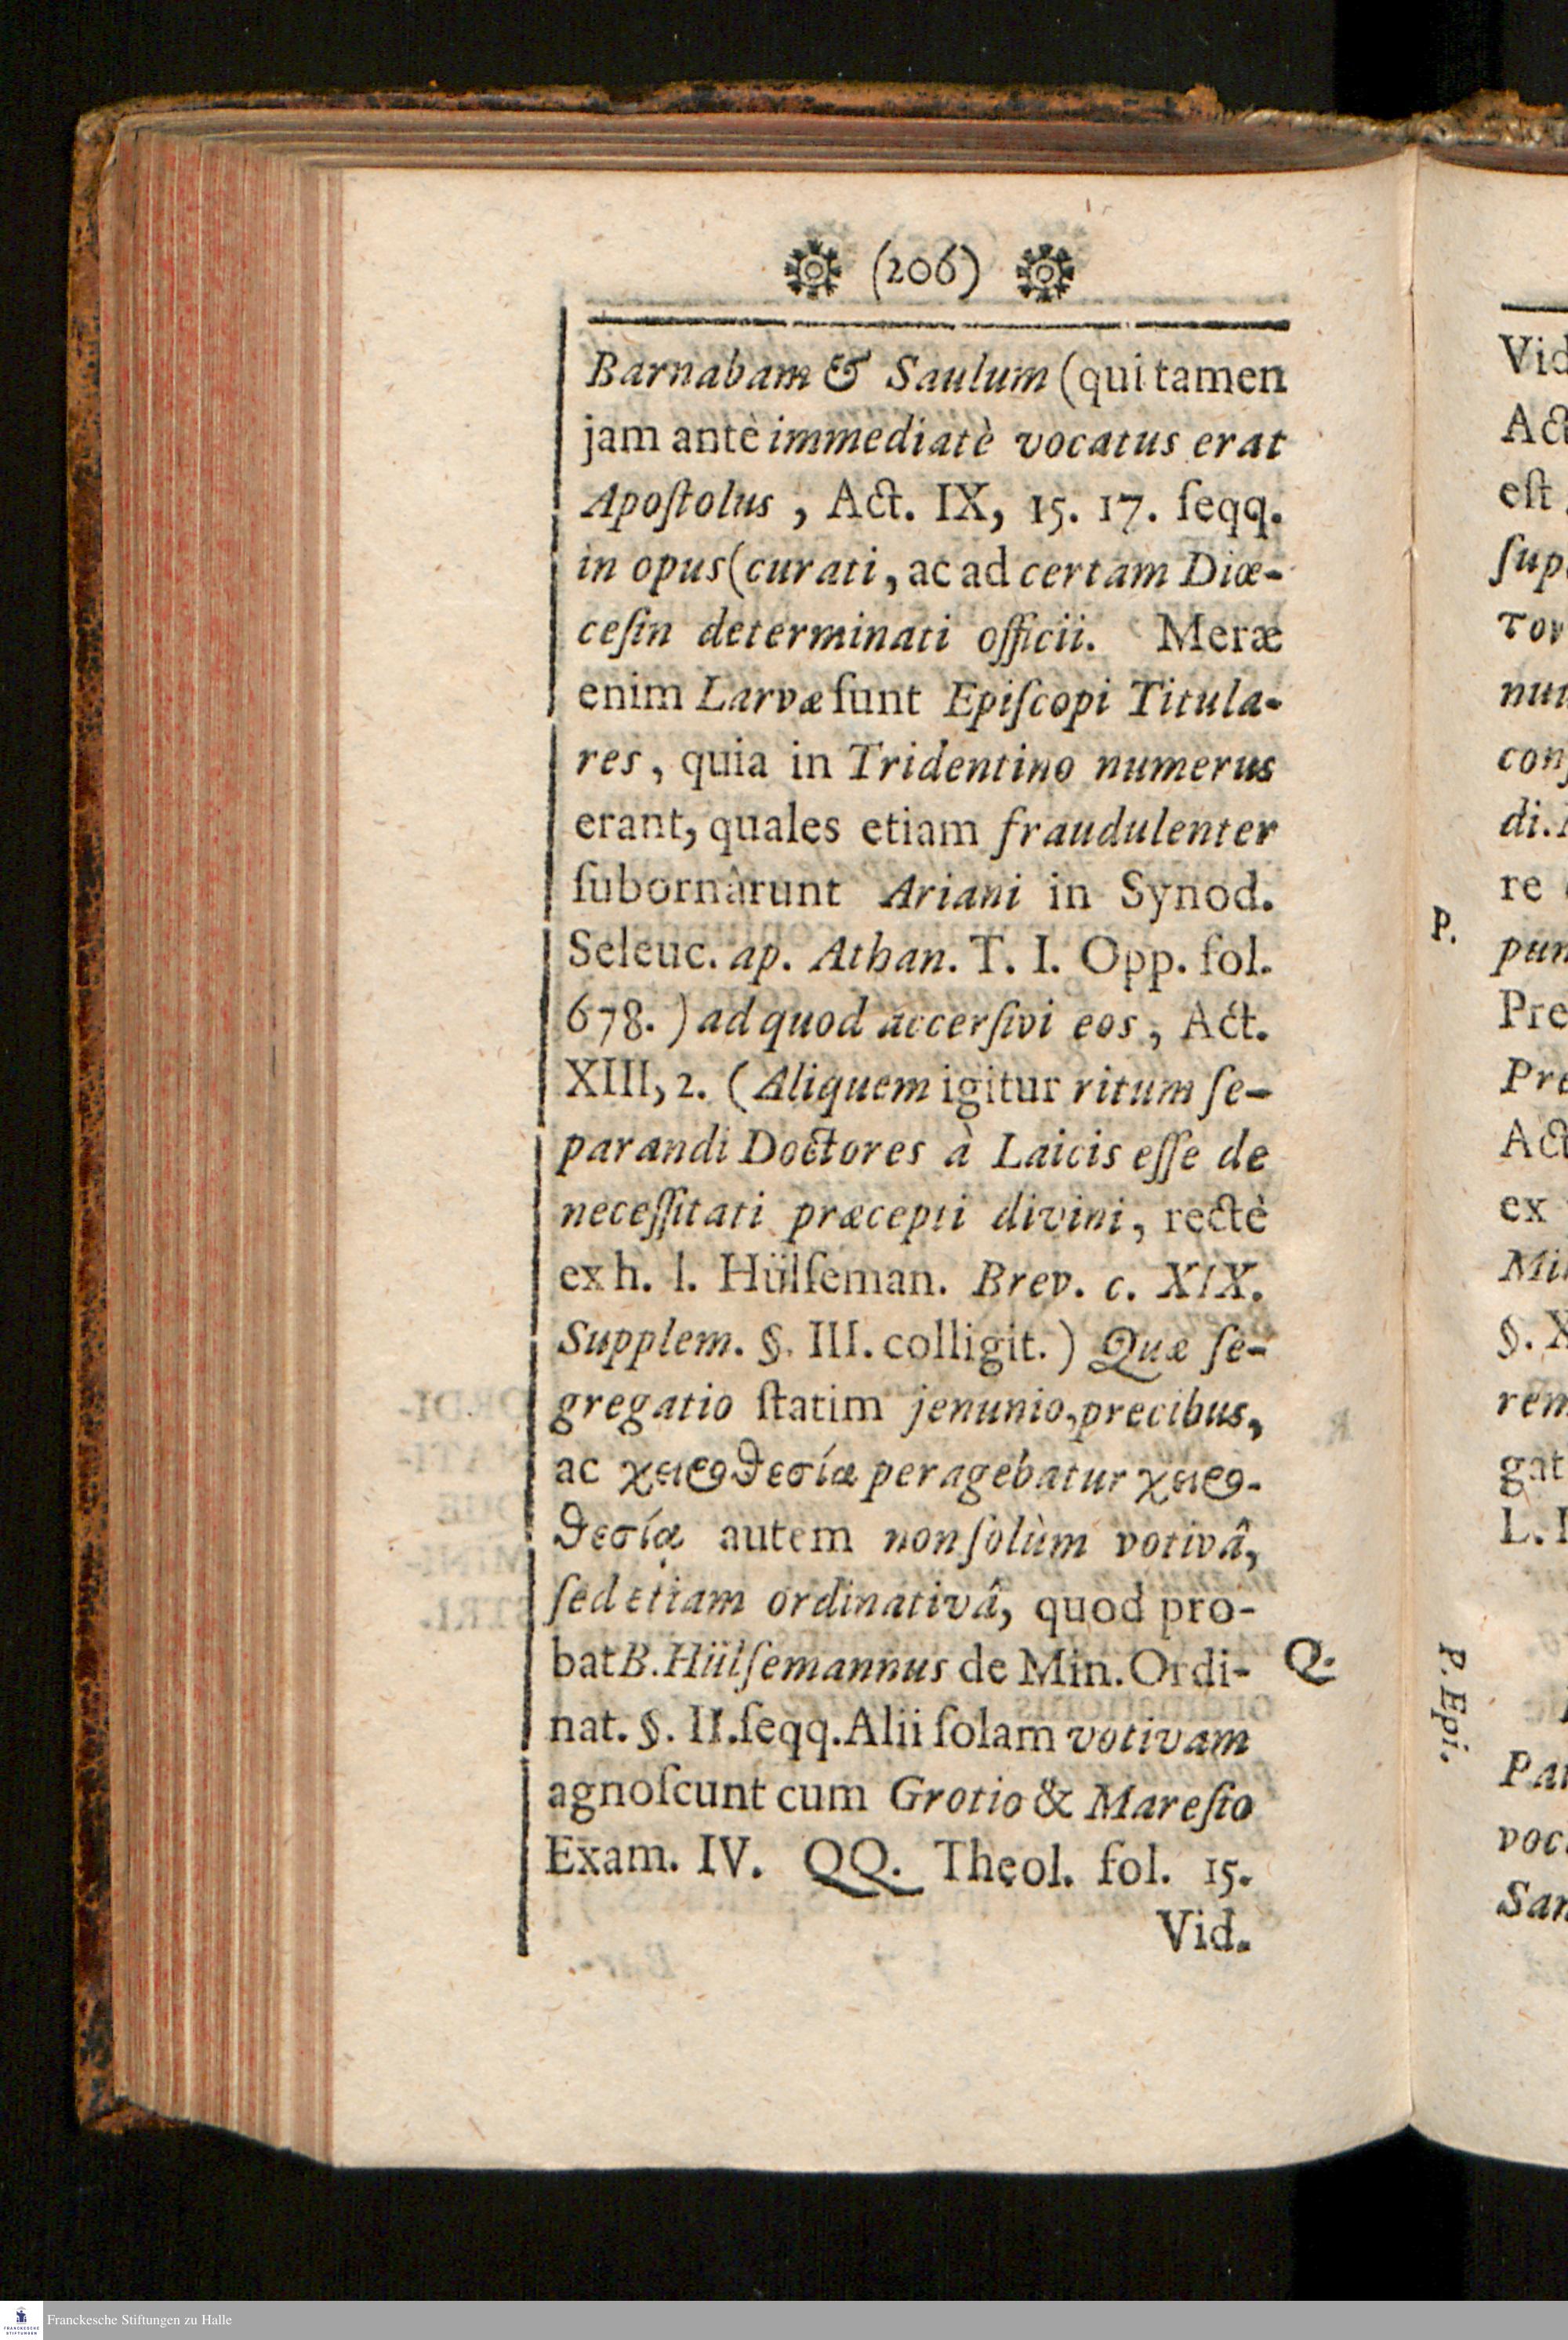 (206)
Barnabam & Saulum (qui tamen
jam antè immediatè vocatus erat
Apoſtolus , Act. IX, 15. 17. ſeqq.
in opus (curati, ac ad certam Diœ-
ceſin determinati officii. Meræ
enim Larvæ ſunt Epiſcopi Titula-
res, quia in Tridentino numerus
erant, quales etiam fraudulenter
ſubornârunt Ariani in Synod.
Seleuc. ap. Athan. T. I. Opp. fol.
678. ) ad quod accerſivi eos, Act.
XIII, 2. (Aliquem igitur ritum ſe-
parandi Doctores à Laicis eſſe de
neceſſitati præcepti divini, rectè
ex h. l. Hülſeman. Brev. c. XIX.
Supplem. §. III. colligit.) Quæ ſe-
gregatio ſtatim jenunio, precibus,
ac χειροθεσίᾳ peragebatur χειρο-
θεσίᾳ autem non ſolùm votivâ,
ſed etiam ordinativâ, quod pro-
bat B. Hülſemannus de Min. Ordi-
Q.
nat. §. II. ſeqq. Alii ſolam votivam
agnoſcunt cum Grotio & Mareſio
Exam. IV. QQ. Theol. fol. 15.
Vid.
P.
P. Epi.
Pre
re
ex
§. X
L. I
Franckesche Stiftungen zu Halle